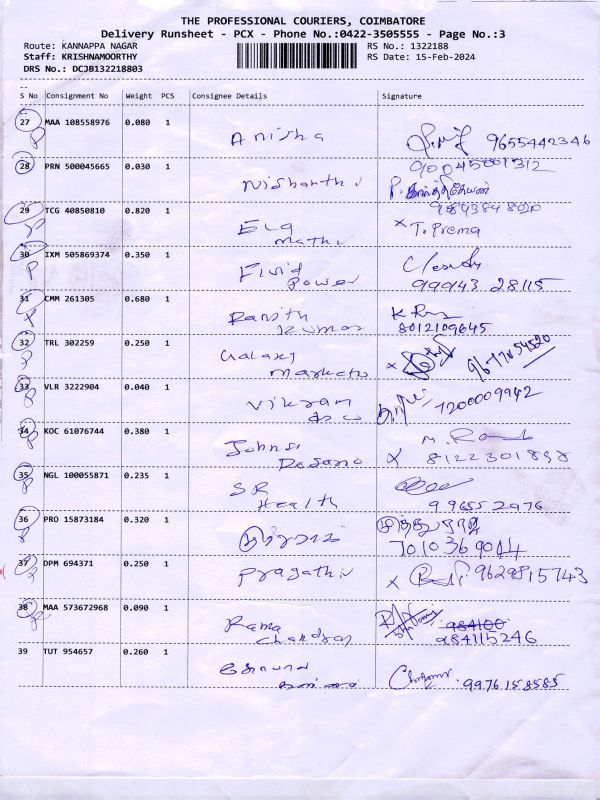 THE PROFESSIONAL COURIERS, COIMBATORE
Delivery Runsheet - PCX - Phone No.:0422-3505555 - Page No.:3
Route: KANNAPPA NAGAR RS No.: 1322188
Staff: KRISHNAMOORTHY RS Date: 15-Feb-2024
DRS No.: DCJB132218803
S No Consignment No Weight PCS Consignee Details Signature
27 MAA 108558976 0.080 1 Anisha 9655442346
28 PRN 500045665 0.030 1 Nishanthi 90045001312
29 TCG 40850810 0.820 1 Ela Mathi 9843848020 T. Prema
30 IXM 505869374 0.350 1 Fluid Power 99943 28115
31 CMM 261305 0.680 1 Ranjith Kumar 8012109645
32 TRL 302259 0.250 1 Galaxy Marketi
33 VLR 3222904 0.040 1 Vikram 7200009942
34 KOC 61076744 0.380 1 Johnsi 8122301898
35 NGL 100055871 0.235 1 SR Health 996552976
36 PRO 15873184 0.320 1 7010369014
37 DPM 694371 0.250 1 Pragathi 9629815743
38 MAA 573672968 0.090 1 Rama Chandran 984100 984115246
39 TUT 954657 0.260 1 9976158585